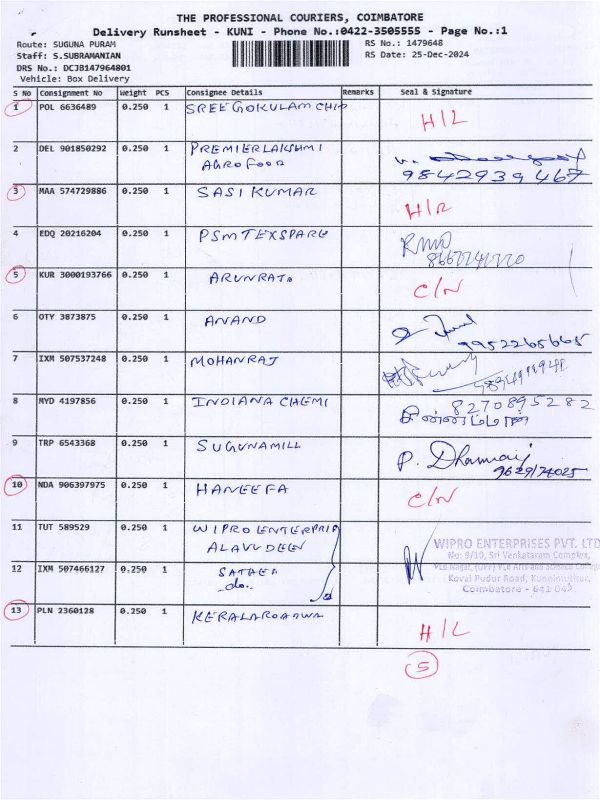 THE PROFESSIONAL COURIERS, COIMBATORE
Delivery Runsheet - KUNI - Phone No.:0422-3505555 - Page No.:1
Route: SUGUNA PURAM
Staff: S.SUBRAMANIAN
DRS No.: DCJB147964801
Vehicle: Box Delivery
RS No.: 1479648
RS Date: 25-Dec-2024
S No Consignment No Weight PCS Consignee Details Remarks Seal & Signature
1 POL 6636489 0.250 1 SREE GOKULAM CHIP H/L
2 DEL 901850292 0.250 1 PREMIERLAKSHMI
AGRO FOOD
9842939467
3 MAA 574729886 0.250 1 SASI KUMAR H/R
4 EDQ 20216204 0.250 1 PSMTEXSPARE
5 KUR 3000193766 0.250 1 ARUNRAJ. C/N
6 OTY 3873875 0.250 1 ANAND
9952265665
7 IXM 507537248 0.250 1 MOHANRAJ
8 MYD 4197856 0.250 1 INDIANA CHEMI 8270895282
9 TRP 6543368 0.250 1 SUGUNAMILL P. Dhanraj
9629174025
10 NDA 906397975 0.250 1 HANEEFA C/N
11 TUT 589529 0.250 1 WIPRO ENTERPRIS
ALAVUDEEN
WIPRO ENTERPRISES PVT. LTD
No: 9/10, Sri Venkataram Complex,
VLB Nagar, (OPP) VLB Arts and Science College
Koval Pudur Road, Kuniamuthur,
Coimbatore - 641 042
12 IXM 507466127 0.250 1
do.
13 PLN 2360128 0.250 1 KERALAROADWA H/L
5